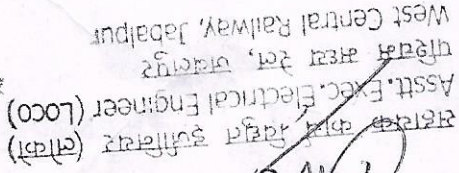 सहायक कार्य. विद्युत इंजीनियर (लोको)
Asstt. Exec. Electrical Engineer (LOCO)
पश्चिम मध्य रेल, जबलपुर
West Central Railway, Jabalpur